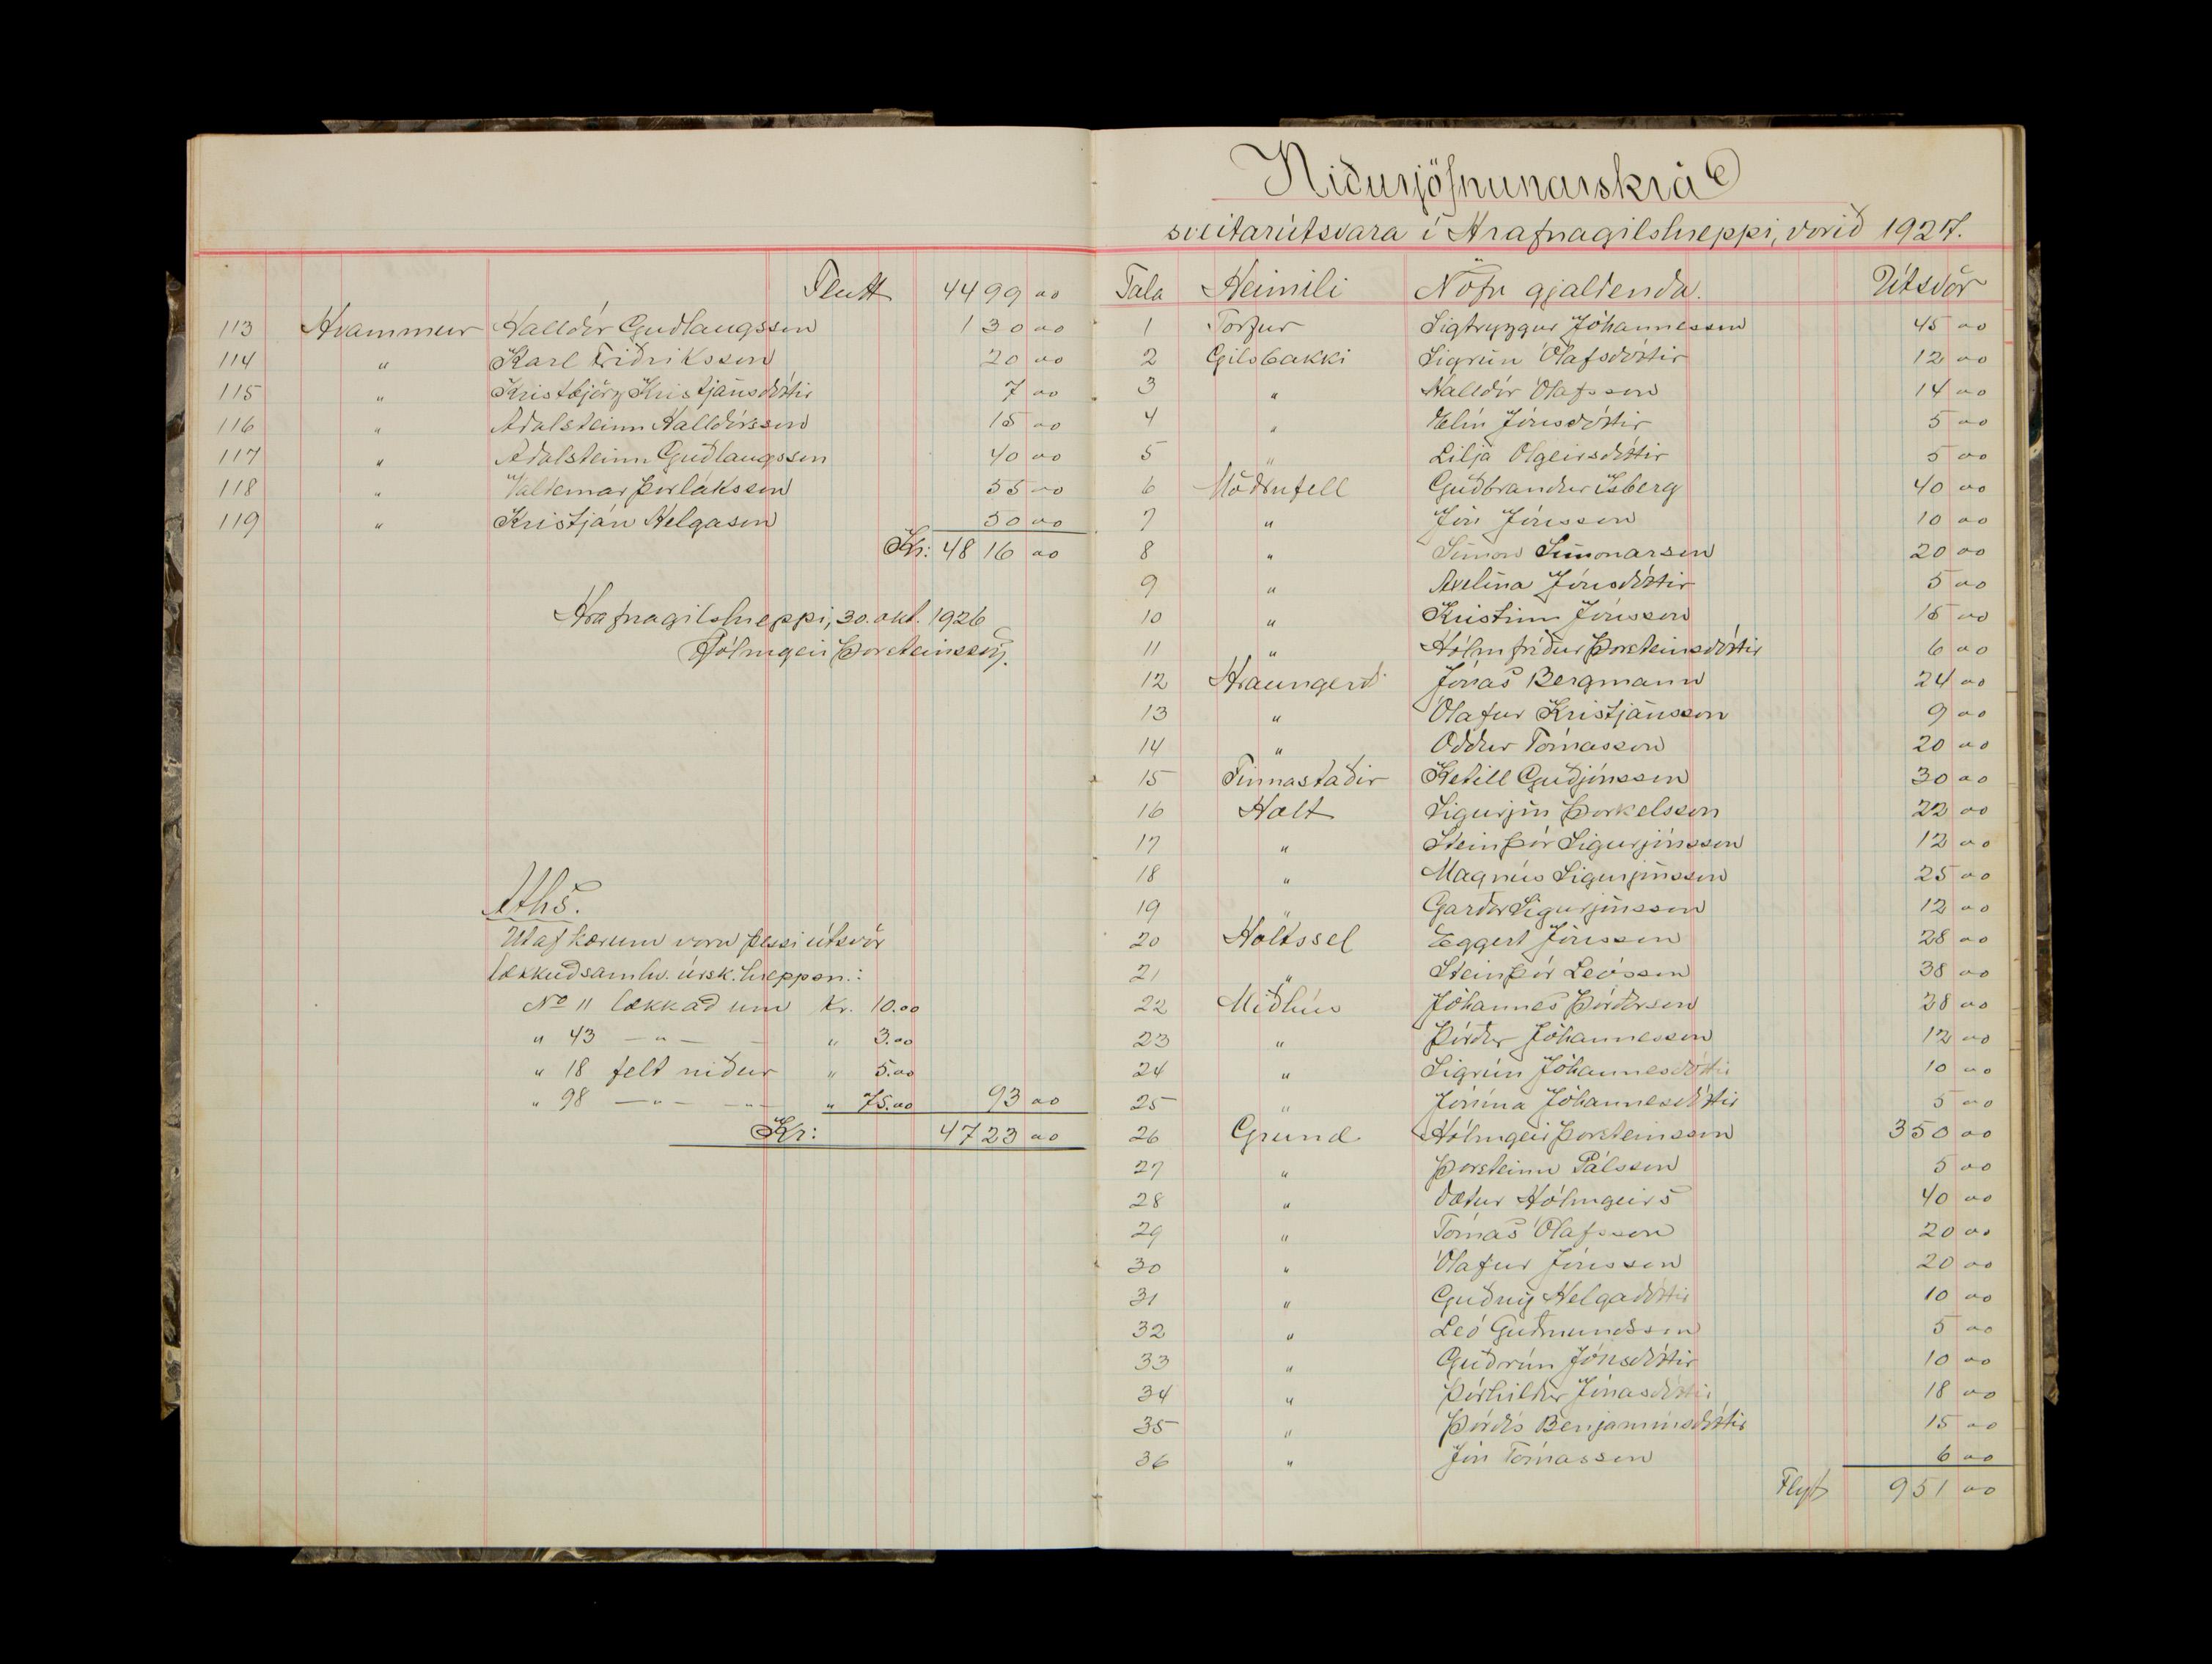 Flutt 4499 00
113 Hvammur Halldór Guðlaugsson 130 00
114 " Karl Friðriksson 20 00
115 " Kristbjörg Kristjánsdóttir 7 00
116 " Aðalsteinn Halldórsson 15 00
117 " Aðalsteinn Guðlaugsson 40 00
118 " Valdemar Þorláksson 55 00
119 " Kristján Helgason 50 00
Kr: 4816 00
Hrafnagilshreppi, 30. okt. 1926
Hólmgeir Þorsteinsson.
Aths.
Út af kærum voru þessi útsvör
lækkuð samkv. úrsk. hreppsn.:
No 11 lækkað um Kr. 10.00
" 43 — " — — " 3.00
" 18 felt niður " 5.00
" 98 — " — — " — " 75.00 93 00
Kr: 4723 00
Niðurjöfnunarskrá
sveitarútsvara í Hrafnagilshreppi, vorið 1927.
Tala Heimili Nöfn gjaldenda. Útsvör
1 Torfur Sigtryggur Jóhannesson 45 00
2 Gilsbakki Sigrún Ólafsdóttir 12 00
3 " Halldór Ólafsson 14 00
4 " Elín Jónsdóttir 5 00
5 " Lilja Olgeirsdóttir 5 00
6 Möðrufell Guðbrandur Ísberg 40 00
7 " Jón Jónsson 10 00
8 " Símon Símonarson 20 00
9 " Axelína Jónsdóttir 5 00
10 " Kristinn Jónsson 15 00
11 " Hólmfríður Þorsteinsdóttir 6 00
12 Hraungerði Jónas Bergmann 24 00
13 " Ólafur Kristjánsson 9 00
14 " Oddur Tómasson 20 00
15 Finnastaðir Ketill Guðjónsson 30 00
16 Holt Sigurjón Þorkelsson 22 00
17 " Steinþór Sigurjónsson 12 00
18 " Magnús Sigurjónsson 25 00
19 " Garðar Sigurjónsson 12 00
20 Holtssel Eggert Jónsson 28 00
21 " Steinþór Leósson 38 00
22 Miðhús Jóhannes Þórðarson 28 00
23 " Þórður Jóhannesson 12 00
24 " Sigrún Jóhannesdóttir 10 00
25 " Jónína Jóhannesdóttir 5 00
26 Grund Hólmgeir Þorsteinsson 350 00
27 " Þorsteinn Pálsson 5 00
28 " Dætur Hólmgeirs 40 00
29 " Tómas Ólafsson 20 00
30 " Ólafur Jónsson 20 00
31 " Guðný Helgadóttir 10 00
32 " Leó Guðmundsson 5 00
33 " Guðrún Jónsdóttir 10 00
34 " Þórhildur Jónasdóttir 18 00
35 " Þórdís Benjamínsdóttir 15 00
36 " Jón Tómasson 6 00
Flyt 951 00